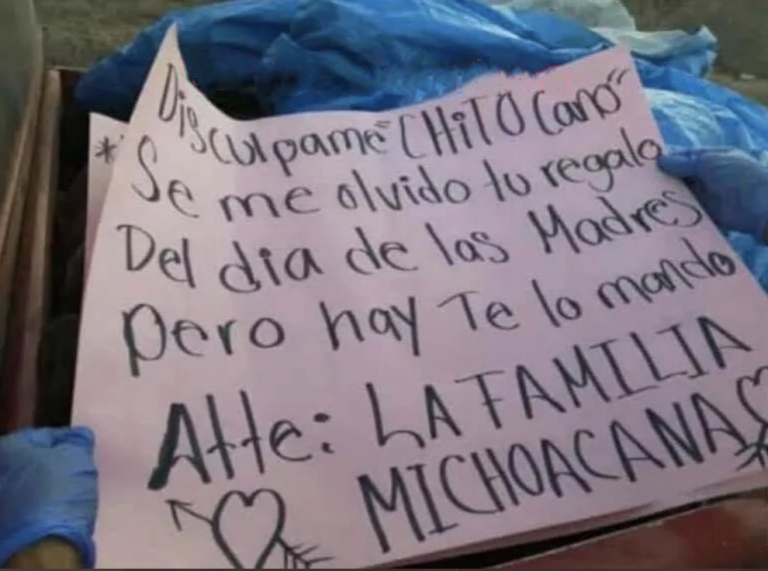 * Disculpame "CHITO Cano"
Se me olvido tu regalo
Del dia de las Madres
pero hay Te lo mando
Atte: LA FAMILIA
MICHOACANA